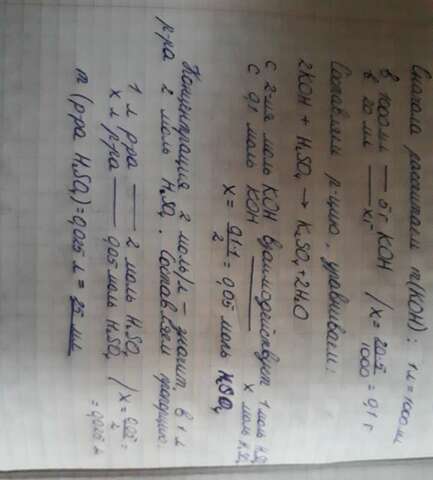 Сначала рассчитаем m(KOH): 1л=1000мл
в 1000мл — 5г KOH
в 20 мл — xг / x = 20·5/1000 = 0,1 г
Составляем р-цию, уравниваем:
2KOH + H₂SO₄ → K₂SO₄ + 2H₂O
С 2-мя моль KOH взаимодействует 1 моль H₂SO₄
С 0,1 моль KOH — x моль H₂SO₄
x = 0,1·1/2 = 0,05 моль H₂SO₄
Концентрация 2 моль/л – значит в 1 л
р-ра 2 моль H₂SO₄. Составляем пропорцию:
1 л р-ра — 2 моль H₂SO₄
x л р-ра — 0,05 моль H₂SO₄ / x = 0,05/2 =
= 0,025 л
m(р-ра H₂SO₄) = 0,025 л = 25 мл